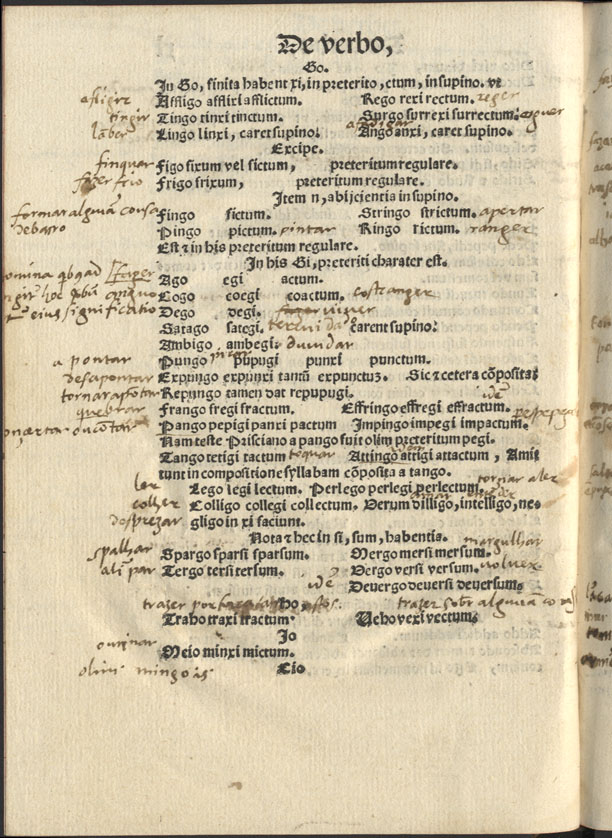 De verbo,
Go.
In Go, finita habent xi, in preterito, ctum, in supino. vt
afligir Affligo afflixi afflictum. Rego rexi rectum. reger
tingir Tingo tinxi tinctum. Surgo surrexi surrectum. erguer
lãber Lingo linxi, caret supino. Ango anxi, caret supino.
Excipe.
finquar Figo fixum vel fictum, preteritum regulare.
fazer frio Frigo frixum, preteritum regulare.
Item n, abijcientia in supino.
formar alguũa cousa Fingo fictum. Stringo strictum. apertar
de barro Pingo pictum. pintar Ringo rictum. ranger
Est & in his preteritum regulare.
In his Gi, preteriti charater est.
Ago egi actum.
Cogo coegi coactum. costranger
eius significatio Dego degi.
Satago sategi. caret supino.
Ambigo ambegi. duuidar
a pontar Pungo pupugi punxi punctum.
desapontar Expungo expunxi tantũ expunctuz. Sic & cetera cõposita
tornar apõtar Repungo tamen dat repupugi.
quebrar Frango fregi fractum. Effringo effregi effractum.
Pango pepigi panxi pactum Impingo impegi impactum.
Nam teste Prisciano a pango fuit olim preteritum pegi.
Tango tetigi tactum toquar Attingo attigi attactum, Amit
tunt in compositione syllabam cõposita a tango.
ler Lego legi lectum. Perlego perlegi perlectum. tornar a ler
colher Colligo collegi collectum. Verum diligo, intelligo, neg
desprezar gligo in xi faciunt.
Nota & hec in si, sum, habentia.
spalhar Spargo sparsi sparsum. Mergo mersi mersum. margulhar
alĩpar Tergo tersi tersum. Vergo versi versum. voluer
idẽ Deuergo deuersi deuersum.
trazer por Ho trazer sobr alguũa
Traho traxi tractum. Veho vexi vectum.
Io
ourinar Meio minxi mictum.
olim mingo is Cio